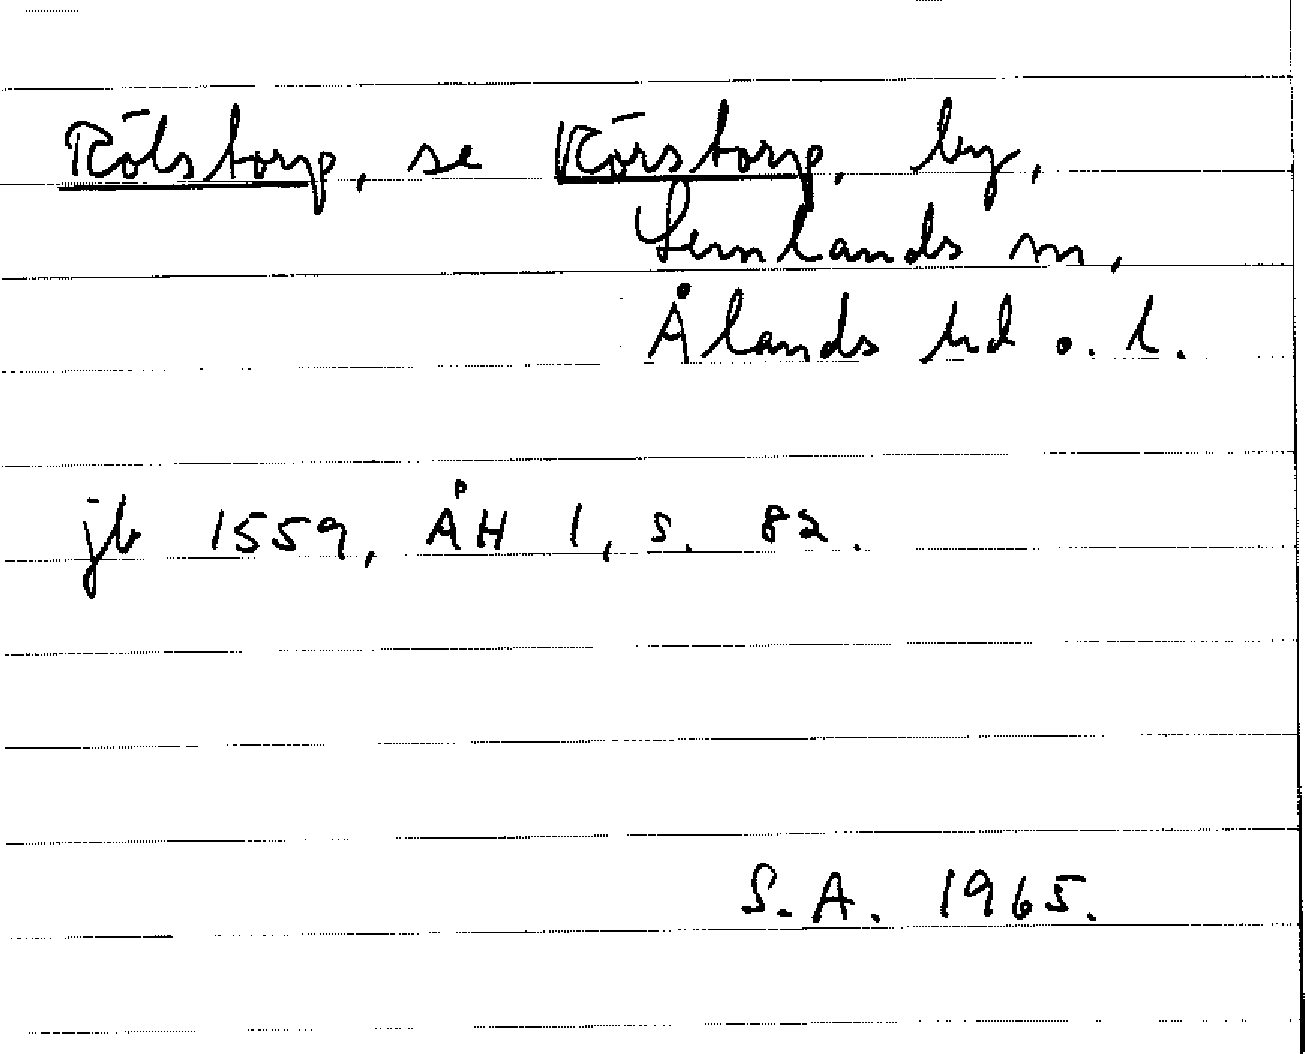 Rölstorp, se Rörstorp, by,
Lemlands sn,
Ålands hd o. l.
jb 1559, ÅH 1, s. 82.
S.A. 1965.